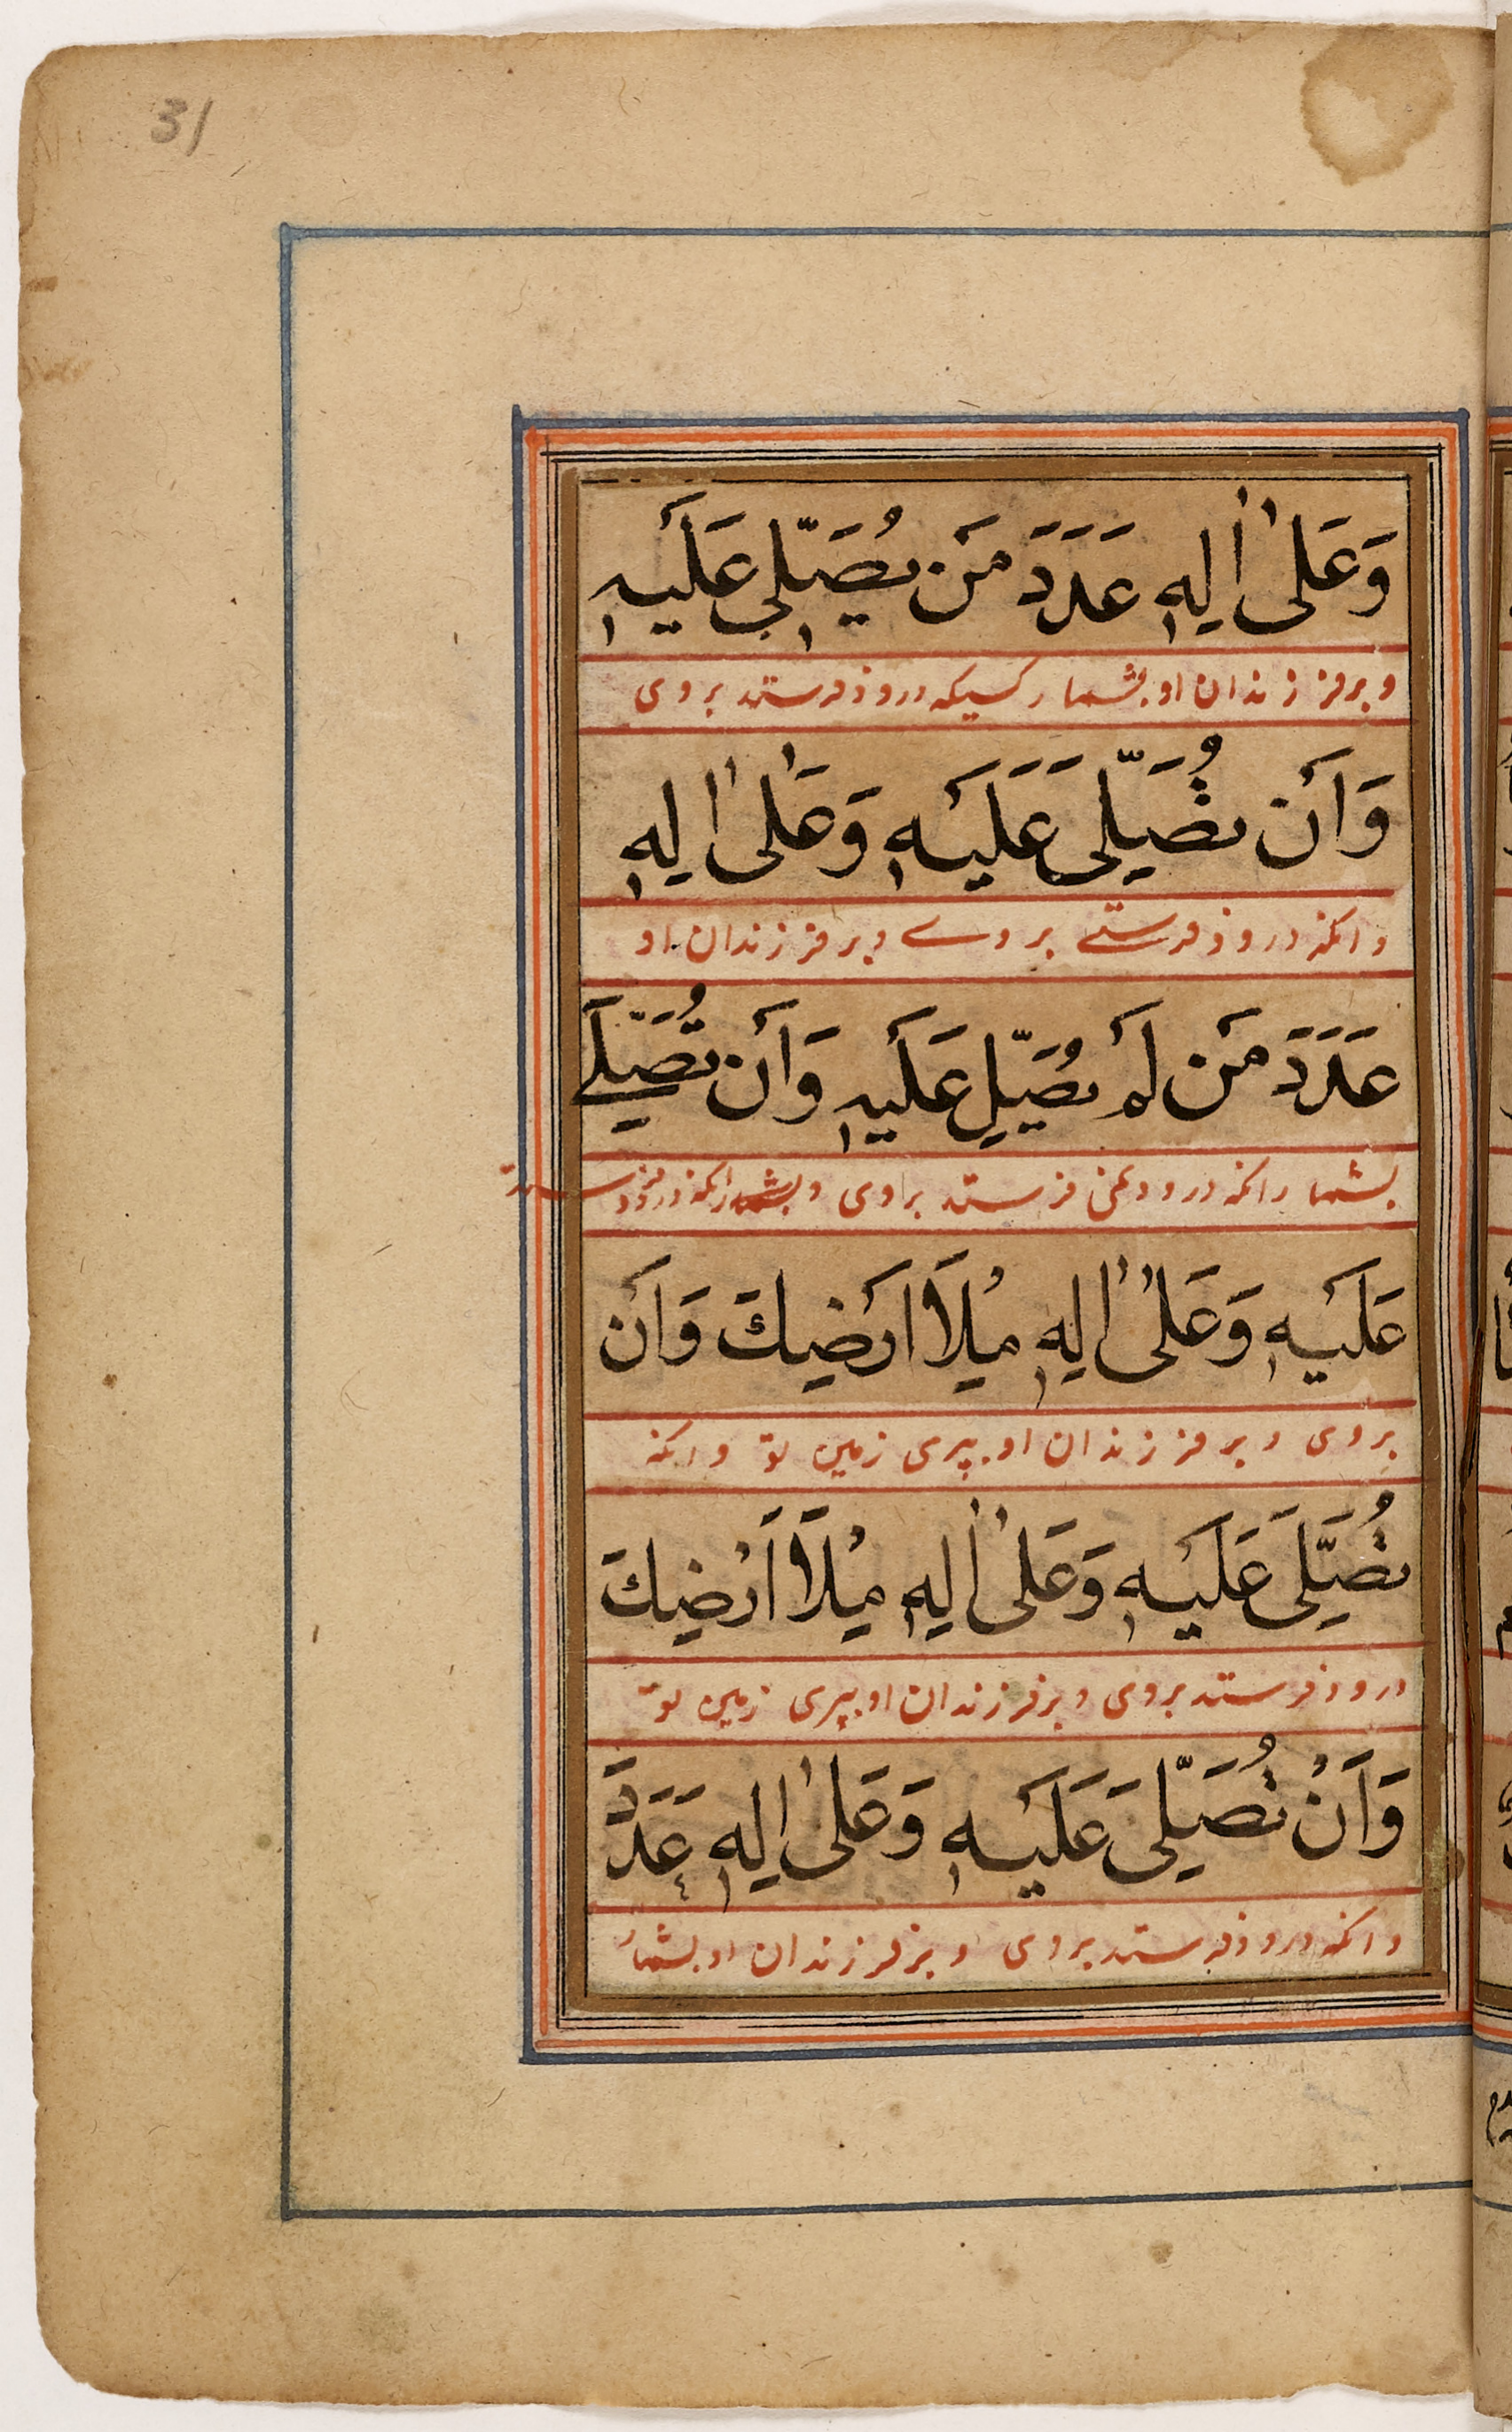 31
وَعَلىٰ اٰلِهٖ عَدَدَ مَن يُصَلّي عَلَيهِ
و بر فرزندان او بشمار کسیکه درود فرستد بر وی
وَاَن تُصَلِّى عَلَيْهِ وَعَلىٰ اٰلِهٖ
وانکه درود فرستے بر وے و بر فرزندان او
عَدَدَ مَن لَم يُصَلِّ عَلَيهِ وَاَن تُصَلِّے
بشمار انکه درود نمی فرستد براوی و بشمار انکه درود فرستد
عَلَيْهِ وَعَلىٰ اٰلِهٖ مِلَٔا اَرضِكَ وَاَن
بروی و بر فرزندان او بپری زمین تو وانکه
تُصَلِّىَ عَلَيْهِ وَعَلىٰ اٰلِهٖ مِلْٔا اَرْضِكَ
درود فرستد بروی و بر فرزندان او بپری زمین تو
وَاَنْ تُصَلِّىَ عَلَيْهِ وَعَلىٰ اٰلِهٖ عَدَدَ
وانکه درود فرستد بروی و بر فرزندان او بشمار